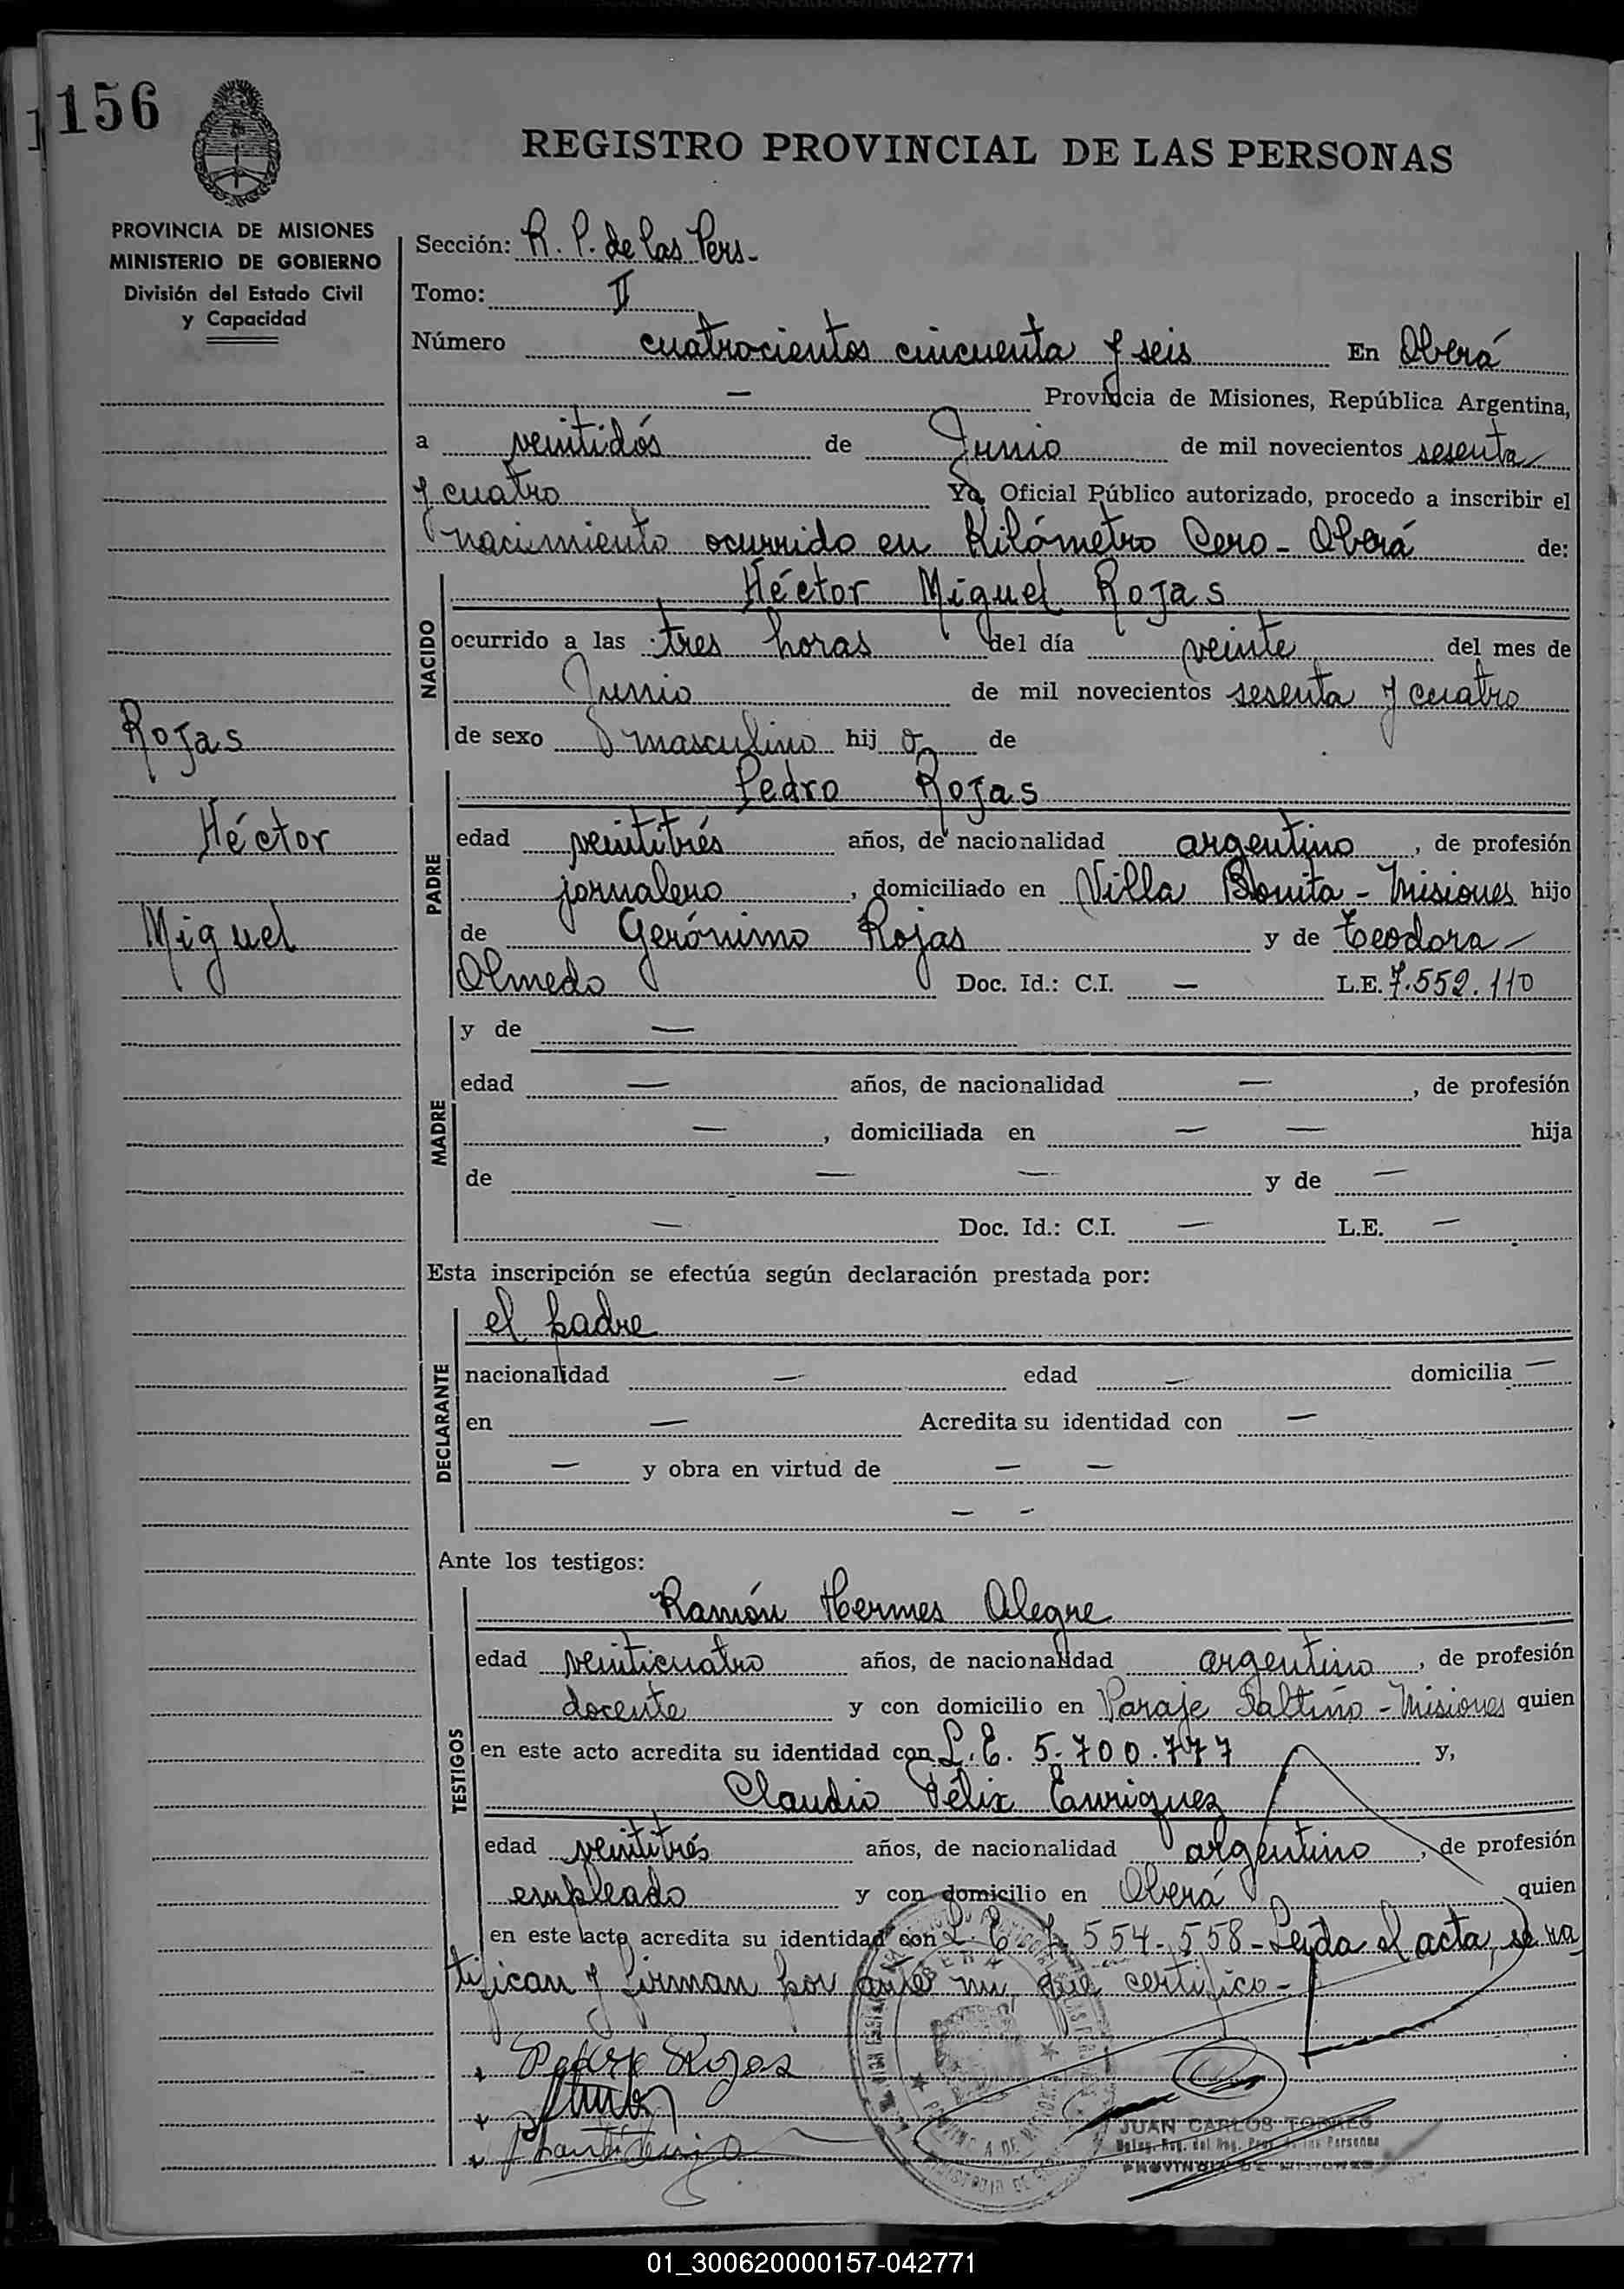 156
REGISTRO PROVINCIAL DE LAS PERSONAS
PROVINCIA DE MISIONES
MINISTERIO DE GOBIERNO
División del Estado Civil
y Capacidad
Sección: R. P. de las Pers.
Tomo: II
Número cuatrocientos cincuenta y seis En Oberá
— Provincia de Misiones, República Argentina,
a veintidós de Junio de mil novecientos sesenta
y cuatro Yo, Oficial Público autorizado, procedo a inscribir el
nacimiento ocurrido en Kilómetro Cero - Oberá de:
NACIDO
Héctor Miguel Rojas
ocurrido a las tres horas del día veinte del mes de
Junio de mil novecientos sesenta y cuatro
de sexo masculino hij o de
Rojas
Héctor
Miguel
PADRE
Pedro Rojas
edad veintitrés años, de nacionalidad argentino, de profesión
jornalero, domiciliado en Villa Bonita - Misiones hijo
de Gerónimo Rojas y de Teodora
Olmedo Doc. Id.: C.I. — L.E. 7.552.110
MADRE
y de —
edad — años, de nacionalidad —, de profesión
—, domiciliada en — — hija
de — — y de —
— Doc. Id.: C.I. — L.E. —
Esta inscripción se efectúa según declaración prestada por:
DECLARANTE
el padre
nacionalidad — edad — domicilia —
en — Acredita su identidad con —
— y obra en virtud de — —
— -
Ante los testigos:
TESTIGOS
Ramón Hermes Alegre
edad veinticuatro años, de nacionalidad argentino, de profesión
docente y con domicilio en Paraje Saltiño - Misiones quien
en este acto acredita su identidad con L.E. 5.700.777 y,
Claudio Félix Enriquez
edad veintitrés años, de nacionalidad argentino, de profesión
empleado y con domicilio en Oberá quien
en este acto acredita su identidad con L.E. 7.554.558 - Leyda el acta, se ra
tifican y firman por ante mi, que certifico -
Pedro Rojas
JUAN CARLOS TORRES
PROVINCIA DE MISIONES
01_300620000157-042771